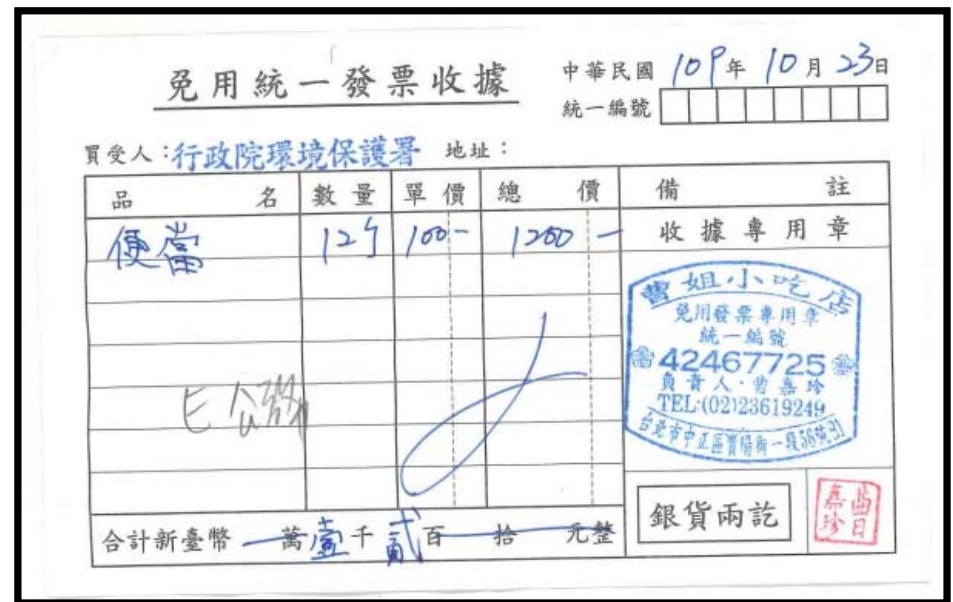 免用統一發票收據
中華民國 109年 10月 23日
統一編號
買受人：行政院環境保護署 地址：
品名 數量 單價 總價 備註
便當 12個 100- 1200- 收據專用章
曹姐小吃店
免用發票專用章
統一編號
42467725
負責人·曹嘉珍
TEL:(02)23619249
台北市中正區寶陽街一段56號
合計新臺幣 萬壹千貳百 拾 元整
銀貨兩訖
曹嘉珍